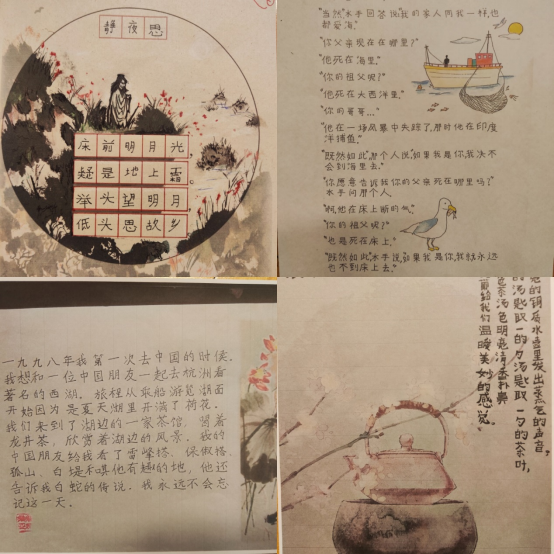 静夜思
床前明月光，
疑是地上霜。
举头望明月
低头思故乡
"当然"水手回答说"我的家人同我一样，也
都爱海。"
"你父亲现在在哪里？"
"他死在海里。"
"你的祖父呢？"
"他死在大西洋里。"
"你的哥哥…"
"他在一场风暴中失踪了，那时他在印度
洋捕鱼。"
"既然如此"那个人说"如果我是你，我决不
会到海里去。"
"你愿意告诉我你的父亲死在哪里吗？"
水手问那个人
他在床上断的气"
"你的祖父呢？"
"也是死在床上。"
"既然如此"水手说"如果我是你，我就永远
也不到床上去。"
一九九八年我第一次去中国的时候。
我想和一位中国朋友一起去杭州看
著名的西湖。旅程从乘船游览湖面
开始因为是夏天湖里开满了荷花。
我们来到了湖边的一家茶馆，喝着
龙井茶，欣赏着湖边的风景。我的
中国朋友给我看了雷峰塔、保俶塔、
孤山、白堤和其他有趣的地，他还
告诉我白蛇的传说。我永远不会忘
记这一天。
的铜瓜水壶里发出蒸气的声音，
的汤匙取一的勺汤匙取一勺的茶叶，
色茶汤色明亮清香朴典
给我们温暖美妙的感觉。